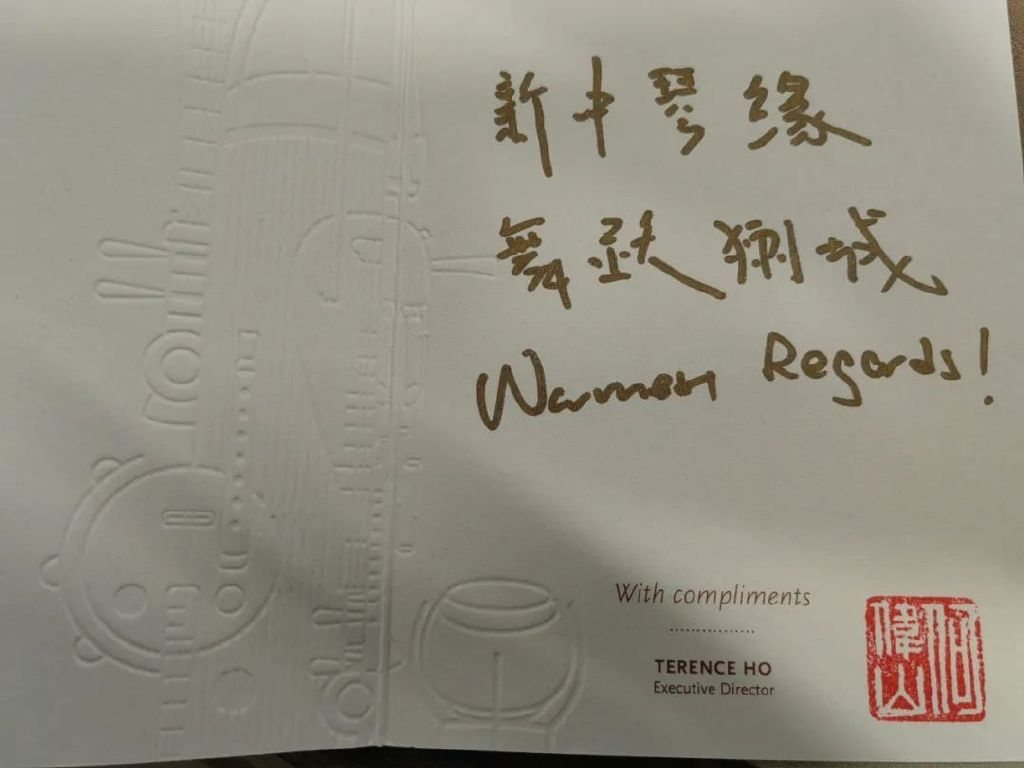 新中琴缘
舞跃狮城
Warmest Regards!
With compliments
TERENCE HO
Executive Director
何偉山